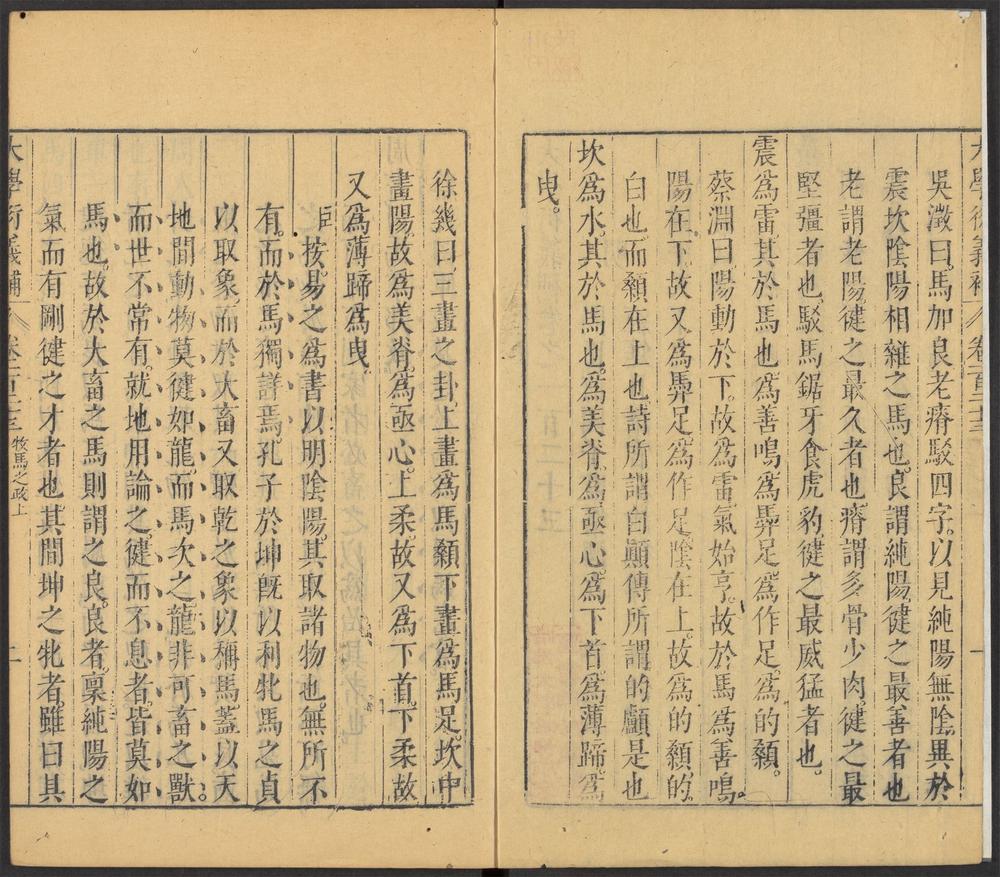 吳澂曰。馬加良老瘠駁四字。以見純陽無陰。異於
震坎陰陽相雜之馬也。良謂純陽。健之最善者也
老謂老陽。健之最久者也。瘠謂多骨少肉。健之最
堅彊者也。駁馬鋸牙食虎豹。健之最威猛者也。
震爲雷。其於馬也。爲善鳴。爲馵足。爲作足。爲的顙。
蔡淵曰。陽動於下。故爲雷。氣始亨。故於馬爲善鳴。
陽在下。故又爲馵足。爲作足。陰在上。故爲的顙。的。
白也。而顙在上也。詩所謂白顚傳所謂的顱是也
坎爲水。其於馬也。爲美脊。爲亟心。爲下首。爲薄蹄。爲
曳。
徐幾曰。三畫之卦。上畫爲馬顙。下畫爲馬足。坎中
畫陽。故爲美脊。爲亟心。上柔。故又爲下首。下柔故
又爲薄蹄。爲曳。
臣按。易之爲書。以明陰陽。其取諸物也。無所不
有。而於馬獨詳焉。孔子於坤旣以利牝馬之貞
以取象。而於大畜又取乾之象以稱馬。葢以天
地間動物莫健如龍。而馬次之。龍非可畜之獸。
而世不常有。就地用論之。健而不息者。皆莫如
馬也。故於大畜之馬則謂之良。良者。稟純陽之
氣而有剛健之才者也。其間坤之牝者。雖曰其
大學衍義補 卷一百二十三 牧馬之政上 二